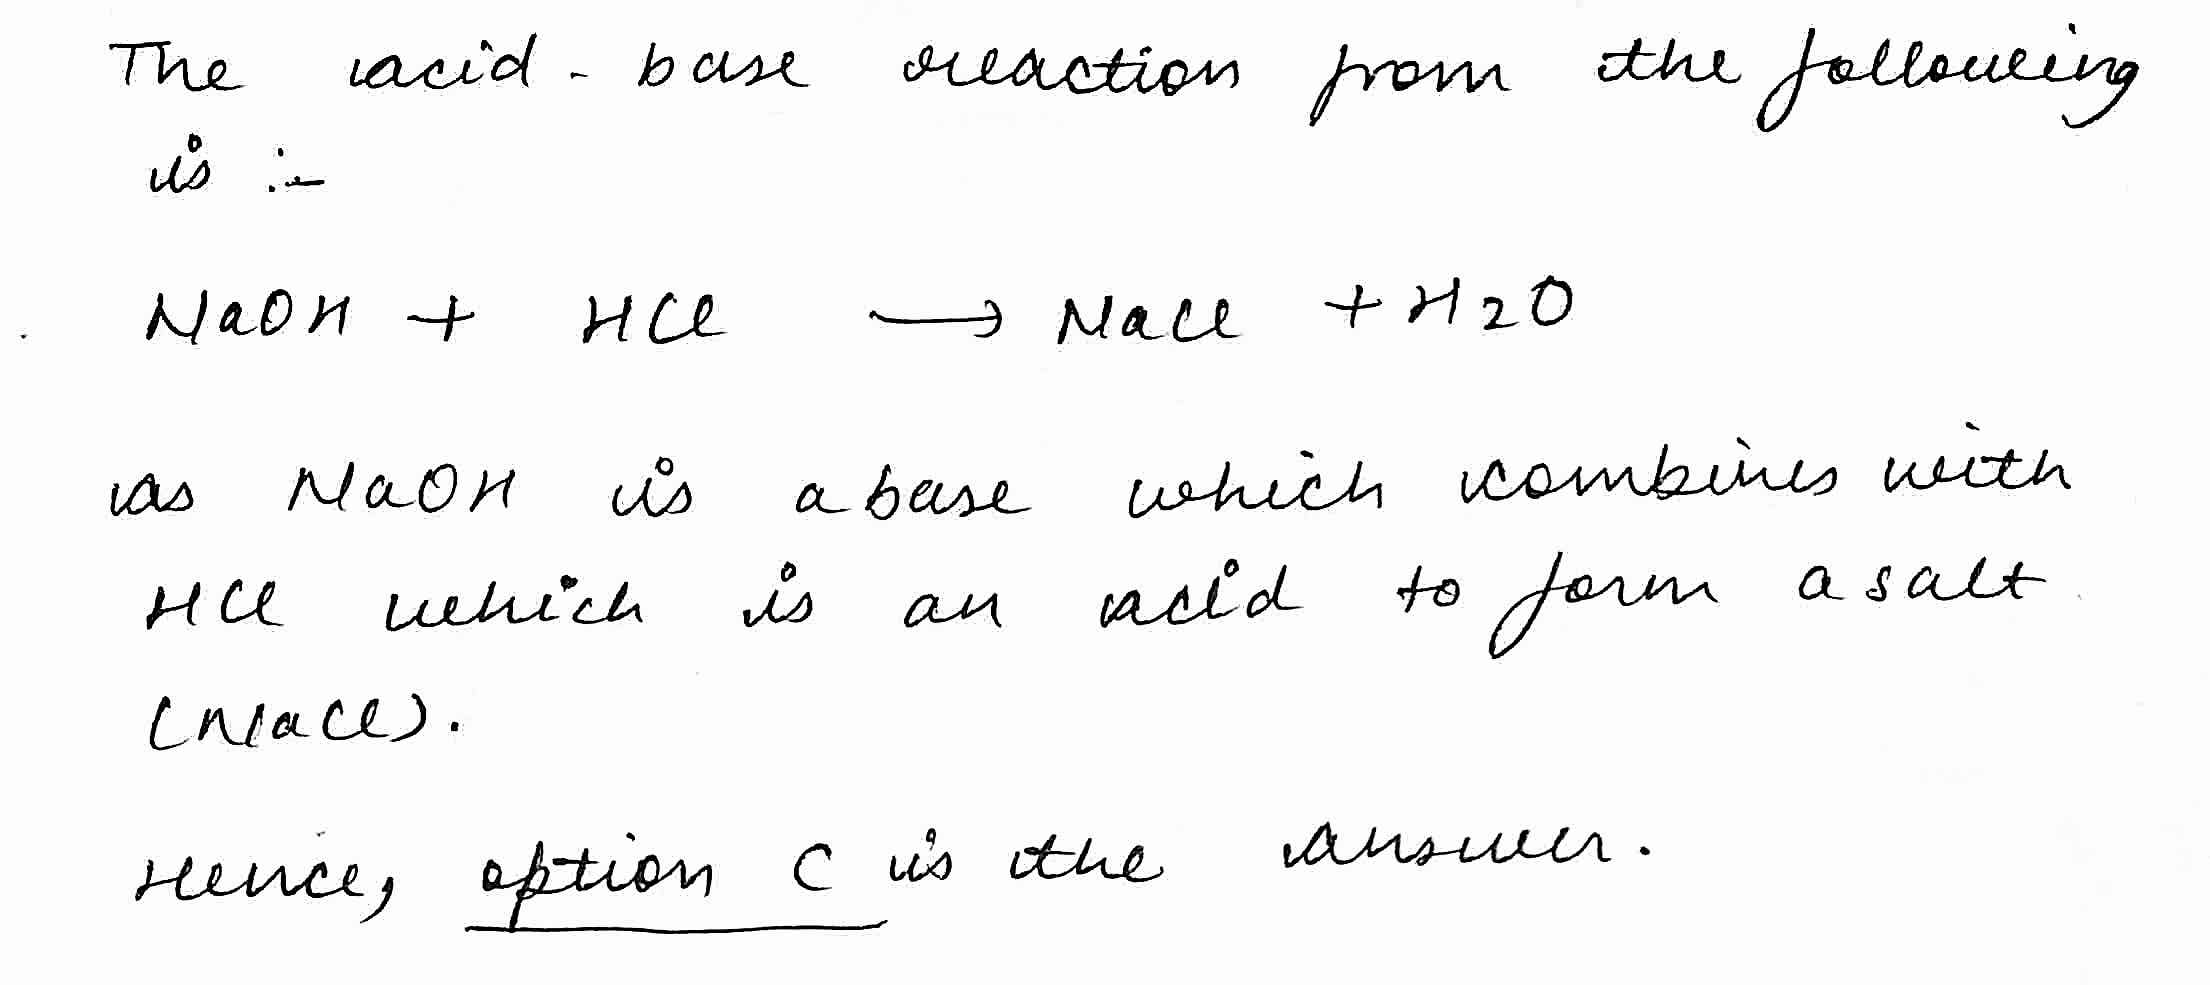 The acid - base reaction from the following
is :-
NaOH + HCl ⟶ NaCl + H2O
as NaOH is a base which combines with
HCl which is an acid to form a salt
(NaCl).
Hence, option C is the answer.